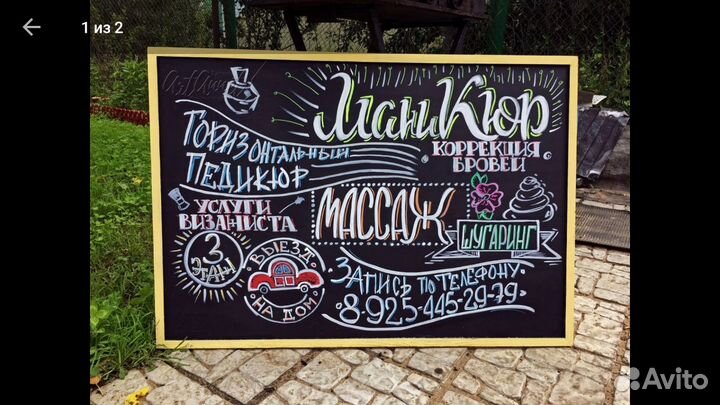 1 из 2
МаниКюр
Коррекция
бровей
Горизонтальный
Педикюр
Услуги
визажиста
Массаж
Шугаринг
3
этаж
Выезд
на дом
Запись по телефону
8-925-445-29-79
Avito